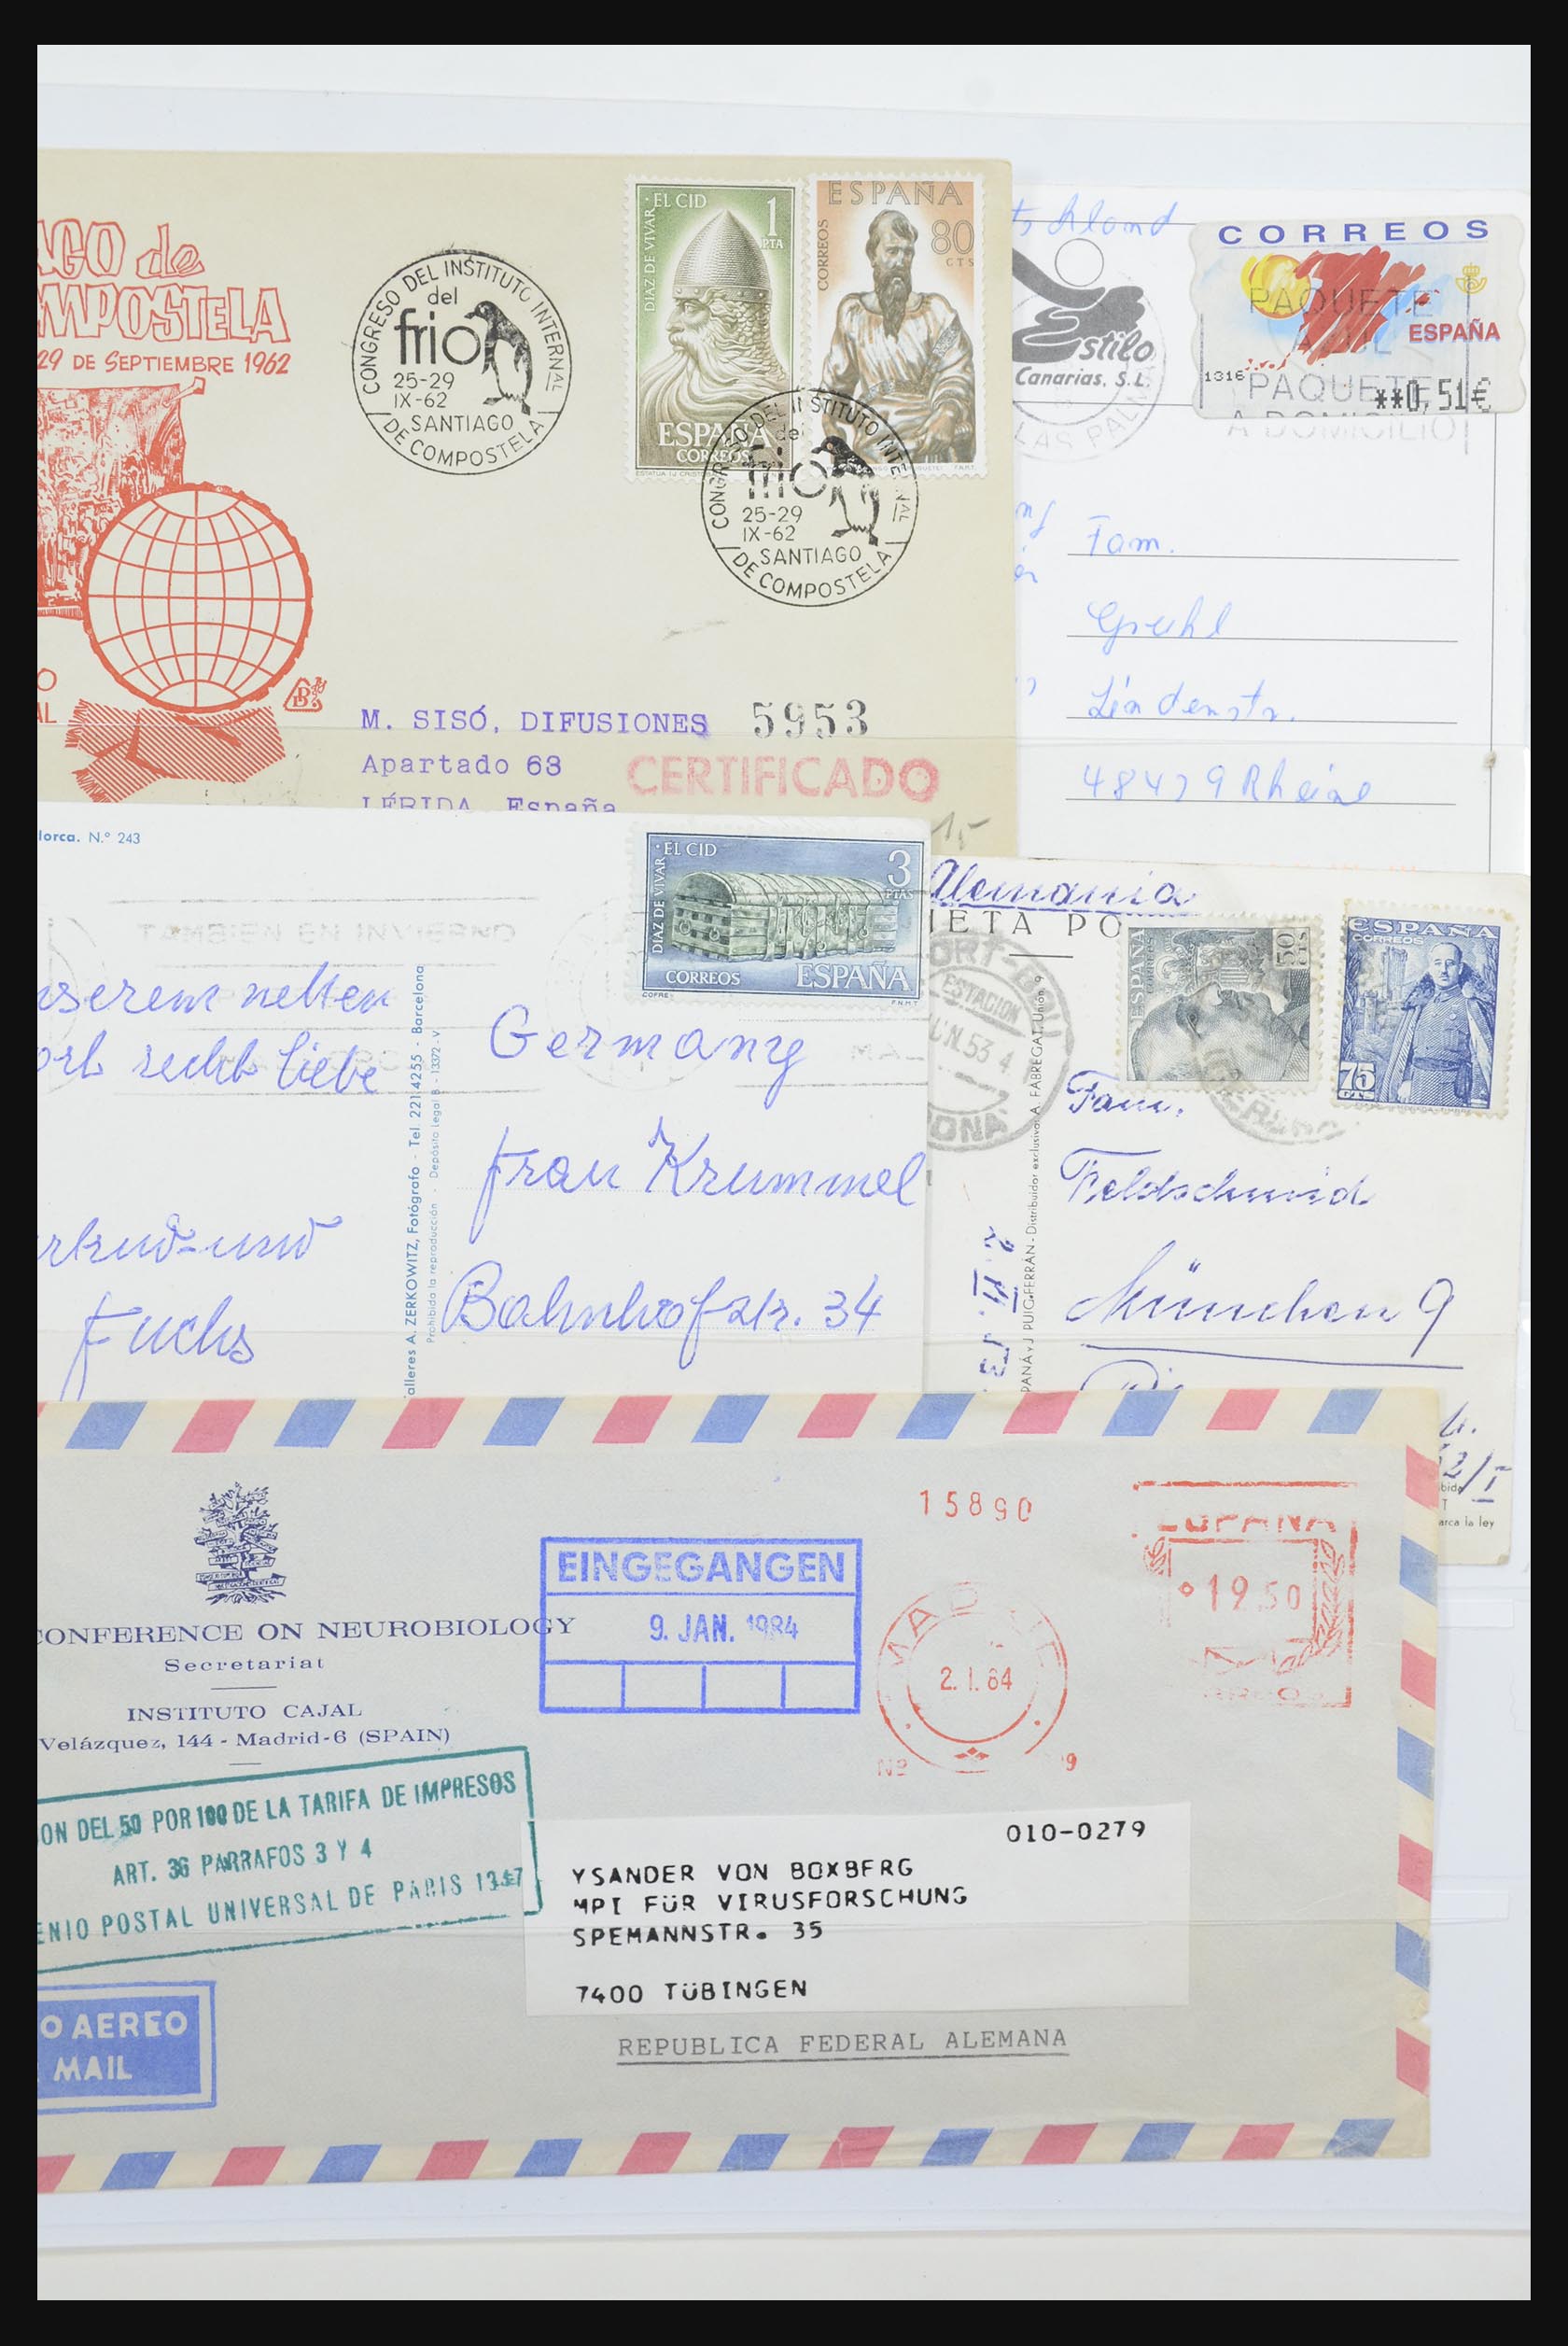 AGO de
MPOSTELA
29 DE SEPTIEMBRE 1962
CONGRESO DEL INSTITUTO INTERNAL
del
frio
25-29
IX-62
SANTIAGO
DE COMPOSTELA
DIAZ DE VIVAR · EL CID
1
PTA
ESPAÑA
CORREOS
ESPAÑA
CORREOS
80
CTS
CONGRESO DEL INSTITUTO INTERNAL
del
frio
25-29
IX-62
SANTIAGO
DE COMPOSTELA
O
AL
M. SISÓ, DIFUSIONES
5953
Apartado 63
CERTIFICADO
LÉRIDA España
15
CORREOS
ESPAÑA
PAQUETE
AZUL
PAQUETE
A DOMICILIO
1316
**0,51€
Estilo
Canarias, S.L.
LAS PALMAS
Fam.
Lindenstr.
48429 Rheine
lorca. N.º 243
TAMBIEN EN INVIERNO
DIAZ DE VIVAR · EL CID
3
PTAS
CORREOS ESPAÑA
COFRE
F.N.M.T
nserem netten
ort recht liebe
Fuchs
Talleres A. ZERKOWITZ, Fotógrafo - Tel. 221 4255 - Barcelona
Prohibida la reproducción - Depósito Legal B - 13372 - V
Germany
Frau Krummel
Bahnhofstr. 34
Alemania
JETA PO
PORT-BOU
ESTACION
JUN.53 4
ESPAÑA
50
CTS
ESPAÑA
CORREOS
75
CTS
Fam.
Feldschmid
München 9
PANÁ y J PUIG-FERRÁN - Distribuidor exclusivo A. FABREGAT. Unión, 9
arca la ley
CONFERENCE ON NEUROBIOLOGY
Secretariat
INSTITUTO CAJAL
Velázquez, 144 - Madrid-6 (SPAIN)
EINGEGANGEN
9. JAN. 1984
15890
MADRID
2. I. 84
Nº 9
ESPAÑA
19 50
CORREOS
ON DEL 50 POR 100 DE LA TARIFA DE IMPRESOS
ART. 36 PARRAFOS 3 Y 4
ENIO POSTAL UNIVERSAL DE PARIS 1947
010-0279
YSANDER VON BOXBERG
MPI FÜR VIRUSFORSCHUNG
SPEMANNSTR. 35
7400 TÜBINGEN
REPUBLICA FEDERAL ALEMANA
O AEREO
MAIL